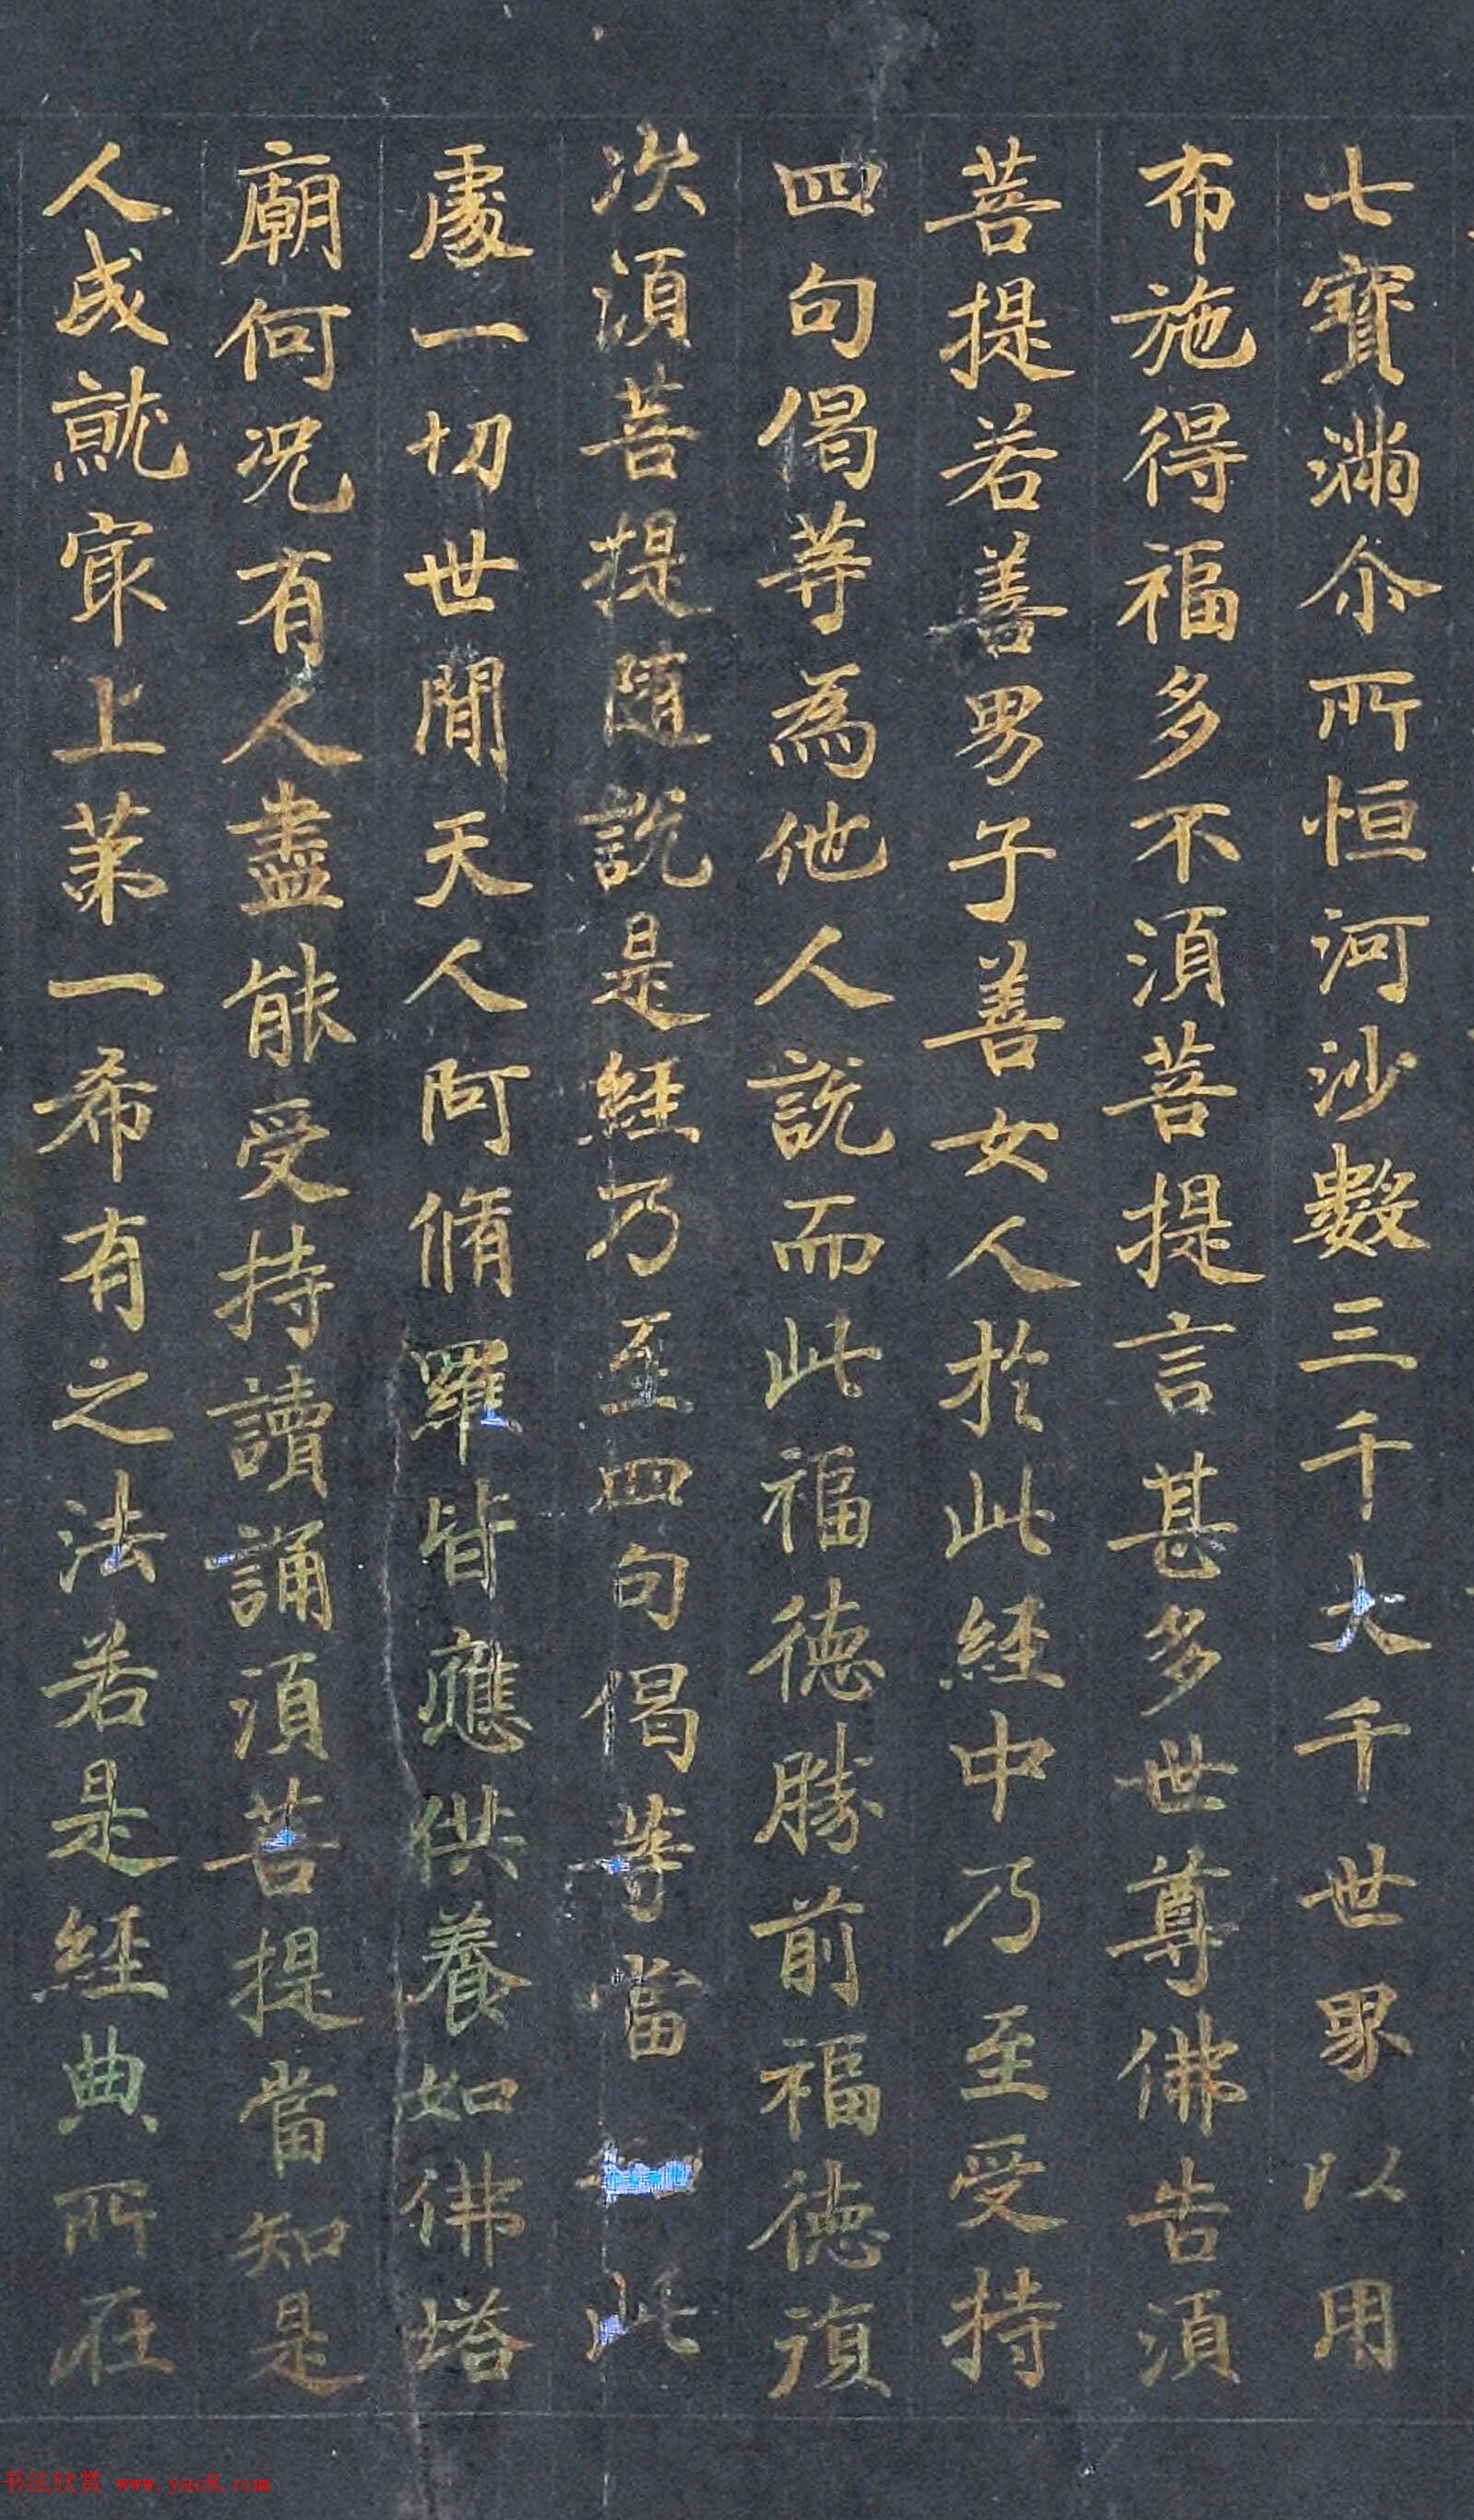 七寳滿尒所恒河沙數三千大千世界以用
布施得福多不須菩提言甚多世尊佛告須
菩提若善男子善女人於此經中乃至受持
四句偈等為他人說而此福德勝前福德復
次須菩提隨說是經乃至四句偈等當知此
處一切世間天人阿脩羅皆應供養如佛塔
廟何況有人盡能受持讀誦須菩提當知是
人成就冣上第一希有之法若是經典所在
书法欣赏 www.yac8.com